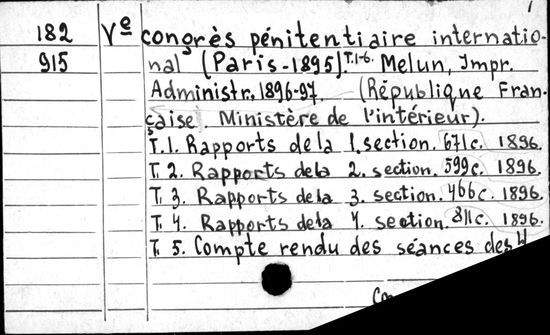 182 Ve congrès pénitentiaire internatio-
915 nal (Paris-1895). T.1-6. Melun, Impr.
Administr., 1896-97. (République Fran-
çaise. Ministère de l'intérieur).
T. 1. Rapports de la 1. section. 671c. 1896.
T. 2. Rapports de la 2. section. 599c. 1896.
T. 3. Rapports de la 3. section. 466c. 1896.
T. 4. Rapports de la 4. section. 811c. 1896.
T. 5. Compte rendu des séances des 4